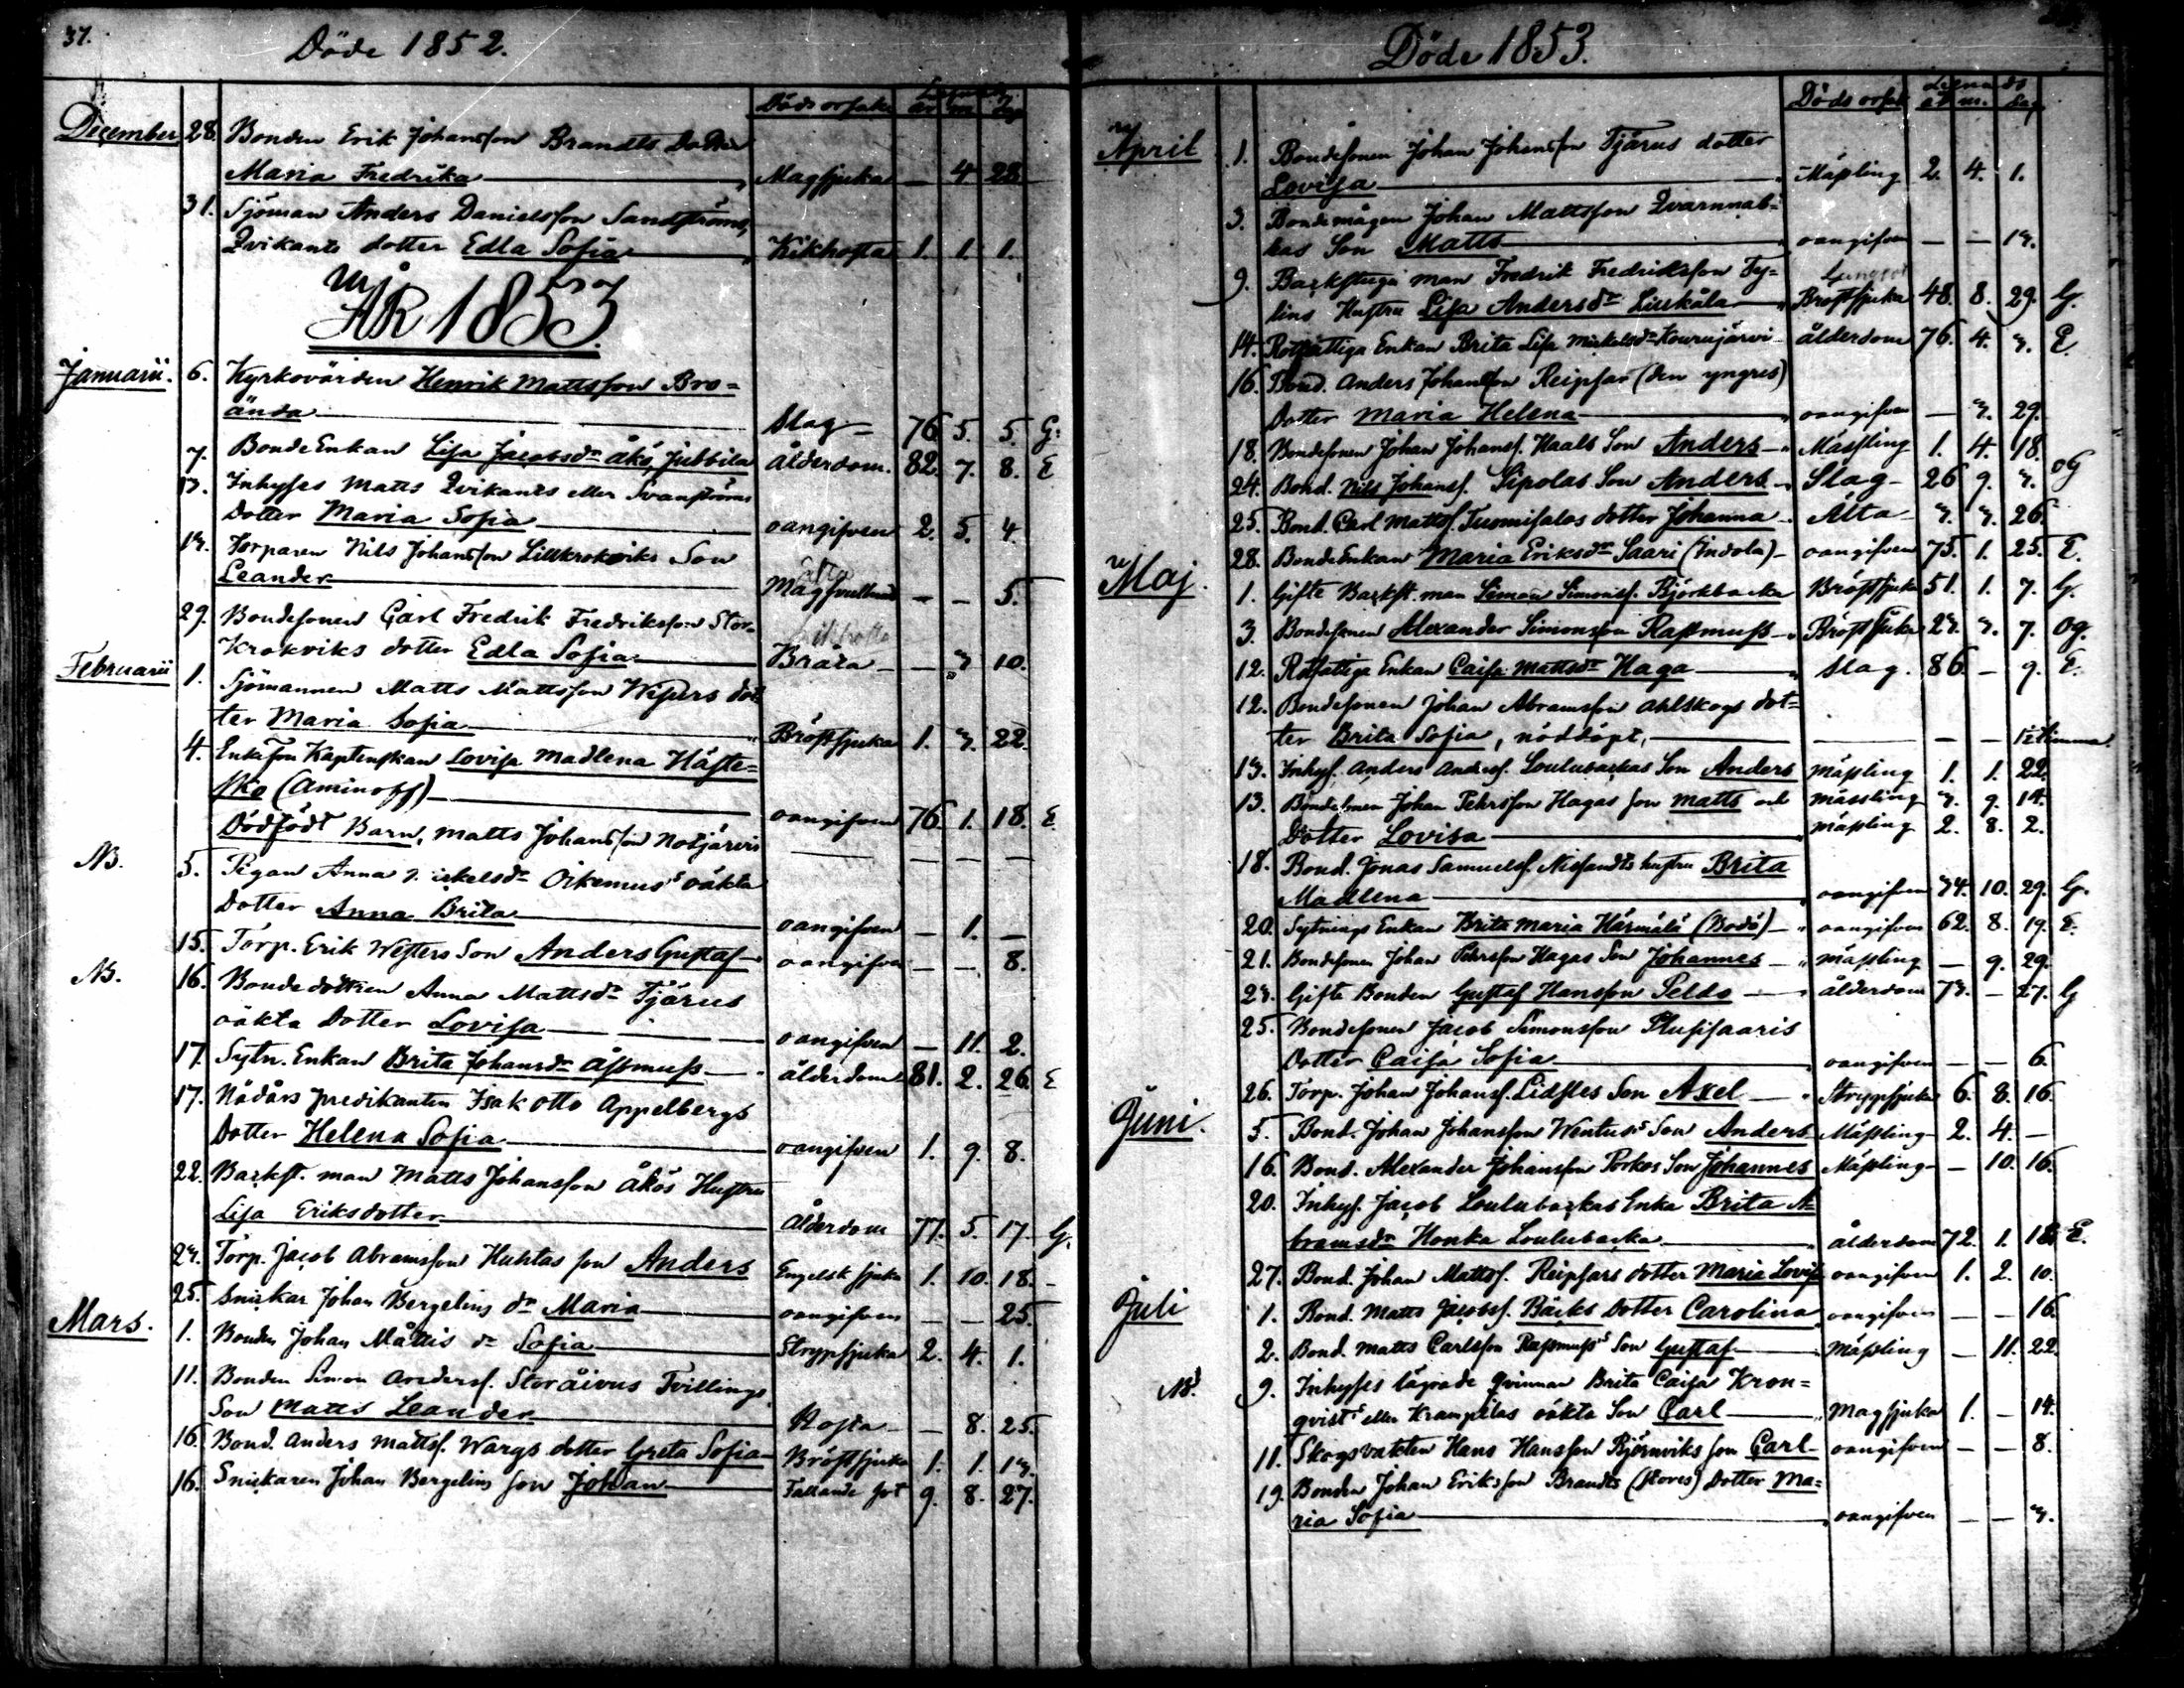 37.
Döde 1852.
Dödsorsak år m. dag
December 28. Bonden Erik Johansson Brandts Dotter
Maria Fredrika Magsjuka — 4 28.
31. Sjöman Anders Danielsson Sandströms,
Qvikants dotter Edla Sofia Kikhosta 1. 1. 1.
ÅR 1853.
Januarii. 6. Kyrkovärden Henrik Mattsson Bro=
ända Slag 76 5. 5. G.
7. BondeEnkan Lisa Jacobsdr Åkö, Jubbila Ålderdom. 82. 7. 8. E
13. Inhyses Matts Qvikants eller Svanströms
Dotter Maria Sofia oangifven 2. 5. 4.
13. Torparen Nils Johansson Lillkrokviks Son
Leander — — 5.
29. Bondesonen Carl Fredrik Fredriksson Stor=
Krokviks dotter Edla Sofia Bråka — 3 10.
Februarii 1. Sjömannen Matts Mattsson Wipers dot=
ter Maria Sofia Bröstsjuka 1. 3. 22.
4. Enkefru Kaptenskan Lovisa Madlena Häste=
sko (Aminoff) oangifven 76. 1. 18. E
Dödfödt Barn, Matts Johansson Notjärvis — — —
NB. 5. Pigan Anna Mickelsdr Oikemus's oäkta
Dotter Anna Brita oangifven — 1. —
15. Torp. Erik Westers Son Anders Gustaf oangifven — — 8.
NB. 16. Bondedottren Anna Mattsdr Tjärus
oäkta Dotter Lovisa oangifven — 11. 2.
17. Sytn. Enkan Brita Johansdr Åssmuss ålderdom 81. 2. 26. E
17. Nådårs predikanten Isak Otto Appelbergs
Dotter Helena Sofia oangifven 1. 9. 8.
22. Backst. man Matts Johansson Åkös Hustru
Lisa Eriksdotter Ålderdom 77. 5. 17 G.
23. Torp. Jacob Abramsson Huhtas son Anders Engelsk sjuka 1. 10. 18.
25. Snickar Johan Bergelins dr Maria oangifven — — 25.
Mars. 1. Bonden Johan Måttis dr Sofia Strypsjuka 2. 4. 1.
11. Bonden Simon Anderss. Storåivus Tvillings
Son Matts Leander Hosta — 8. 25.
16. Bond. Anders Mattss. Wargs dotter Greta Sofia Bröstsjuka 1. 1. 13.
16. Snickaren Johan Bergelins son Johan Fallande sot 9. 8. 27.
Döde 1853.
Dödsorsak år m. dag
April 1. Bondesonen Johan Johansson Tjärus dotter
Lovisa Mässling 2. 4. 1.
3. Bondemågen Johan Mattsson Qvarnnab=
bas Son Matts oangifven — — 13.
9. Backstugu man Fredrik Fredriksson Ty=
lins Hustru Lisa Andersdr Lillkåla Bröstsjuka 48. 8. 29. G.
14. Rotfattiga Enkan Brita Lisa Mickelsdr Kourujärvi ålderdom 76. 4. 3. E.
16. Bond. Anders Johansson Reipsar (den yngres)
Dotter Maria Helena oangifven — 3. 29.
18. Bondesonen Johan Johanss. Haals Son Anders Mässling 1. 4. 18.
24. Bond. Nils Johanss. Sipolas Son Anders Slag 26 9. 3. oG
25. Bond. Carl Mattss. Tuomisalos dotter Johanna Älta 3. 3. 26.
28. BondeEnkan Maria Eriksdr Saari (Indola) oangifven 75. 1. 25. E.
Maj. 1. Gifte Backst. man Simon Simonss. Björkbacka Bröstsjuka 51. 1. 7. G.
3. Bondesonen Alexander Simonsson Rassmuss Bröstsjuka 23. 3. 7. og.
12. Rotfattiga Enkan Caisa Mattsdr Haga Slag. 86. — 9. E.
12. Bondesonen Johan Abramsson Ahlskogs dot=
ter Brita Sofia, nöddöpt, — — — ½ timma.
13. Inhys. Anders Anderss. Loulubackas Son Anders mässling 1. 1. 22.
13. Bondesonen Johan Pehrsson Hagas son Matts och mässling 3. 9. 14.
Dotter Lovisa mässling 2. 8. 2.
18. Bond. Jonas Samuelss. Nissandts hustru Brita
Madlena oangifven 74. 10. 29. G.
20. Sytnings Enkan Brita Maria Härmälä (Bodö) oangifven 62. 8. 19. E.
21. Bondesonen Johan Pehrsson Hagas Son Johannes mässling — 9. 29.
23. Gifte Bonden Gustaf Hansson Peldo ålderdom 73. — 27. G
25. Bondesonen Jacob Simonsson Plussisaaris
Dotter Caisa Sofia oangifven — — 6.
26. Torp. Johan Johanss. Lidstes Son Axel Strypsjuka 6. 8. 16.
Juni. 5. Bond. Johan Johansson Wentus's Son Anders Mässling 2. 4. —
16. Bond. Alexander Johansson Porkos Son Johannes Mässling — 10. 16.
20. Inhys. Jacob Loulubackas Enka Brita A=
bramsdr Honka Loulubacka ålderdom 72. 1. 18. E.
27. Bond. Johan Mattss. Reipsars dotter Maria Lovisa oangifven 1. 2. 10.
Juli 1. Bond. Matts Jacobss. Bäcks Dotter Carolina oangifven — — 16.
2. Bond. Matts Carlsson Rassmuss's Son Gustaf Mässling — 11. 22.
NB. 9. Inhyses lägrade qvinnan Brita Caisa Kron=
qvist's eller Krampilas oäkta Son Carl Magsjuka 1. — 14.
11. Skogsvakten Hans Hansson Björnviks son Carl oangifven — — 8.
19. Bonden Johan Eriksson Brandts (Stores) Dotter Ma=
ria Sofia oangifven — — 3.